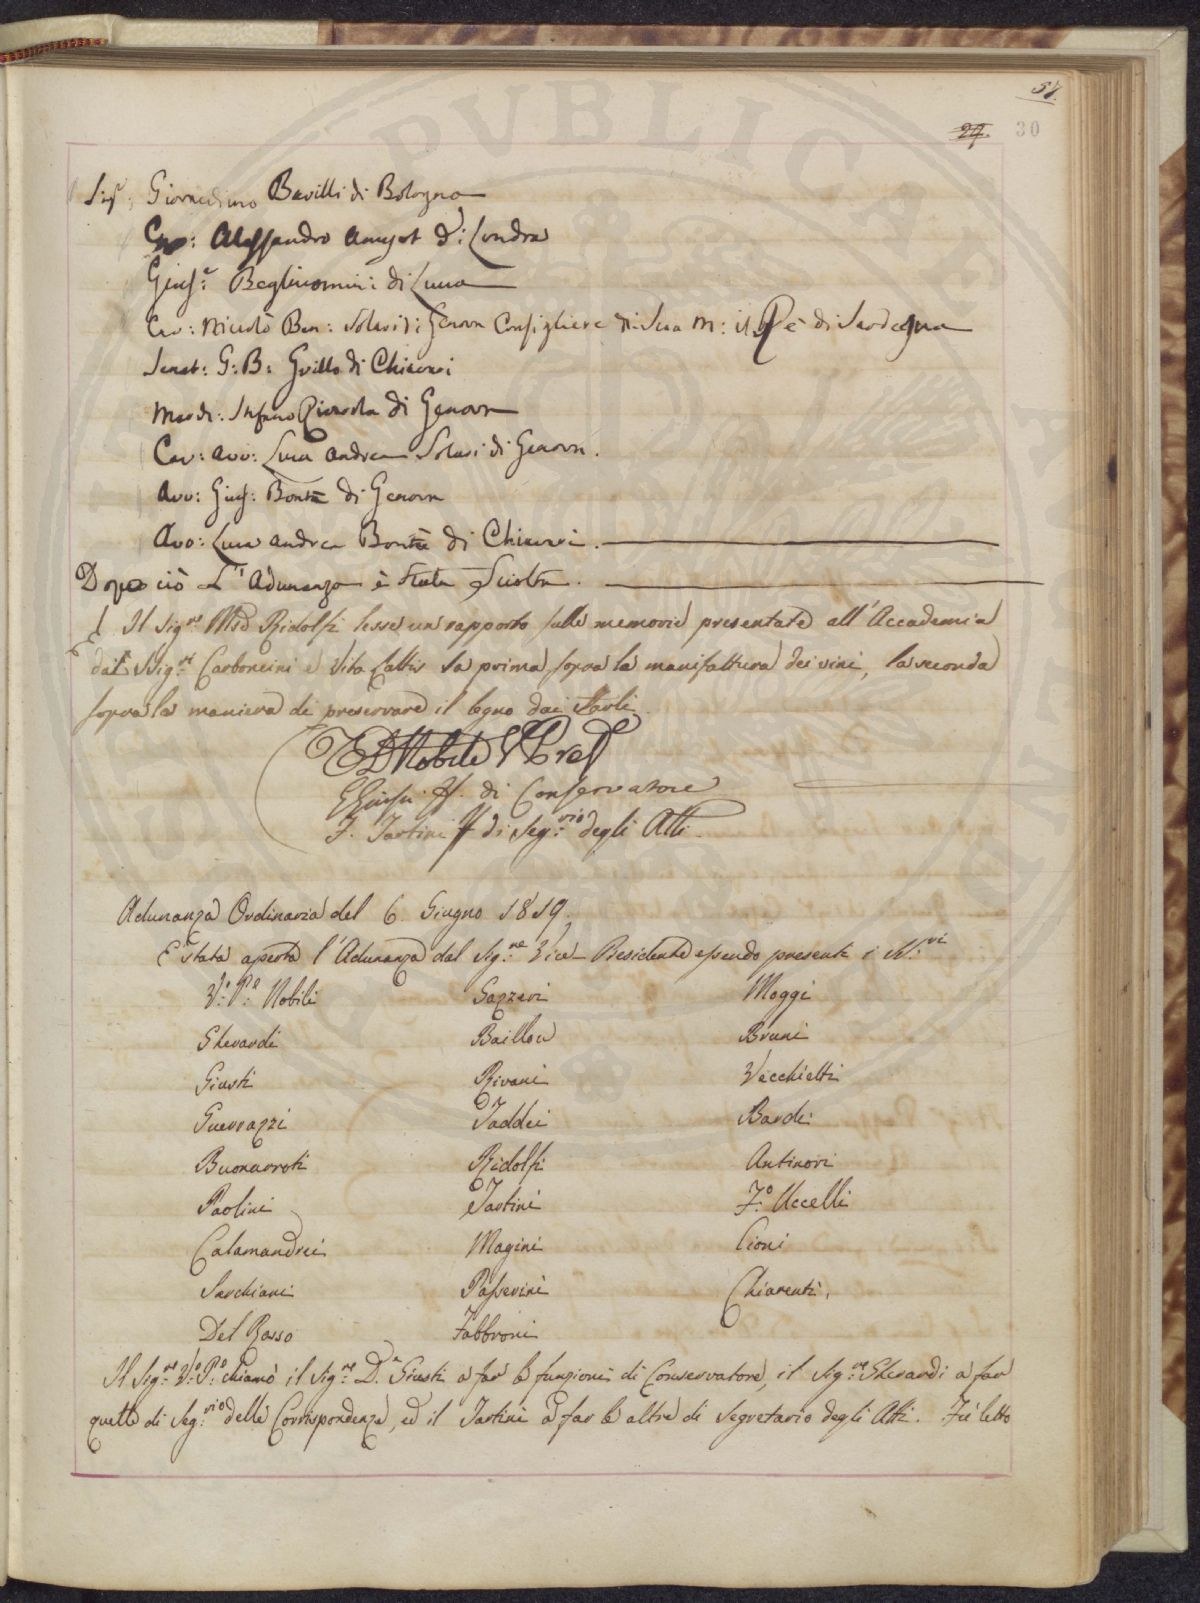 57.
27. 30
Sig.r Giornidino Bavilli di Bologna
Cav: Alessandro Amyot di Londra
Gius.e Begliuomini di Lucca
Cav: Niccolò Ben: Solari di Genova Consigliere di Sua M: il Rè di Sardegna
Senat: G: B: Grillo di Chiavari
March: Stefano Rivarola di Genova
Cav: Avv: Luca Andrea Solari di Genova.
Avv: Gius: Bontà di Genova
Avv: Luca Andrea Bontà di Chiavari.
Dopo ciò L'Adunanza è stata Sciolta.
Il Sig.re M.se Ridolfi lesse un rapporto sulle memorie presentate all'Accademia
dai SSig.ri Carboncini e Vita Cattis la prima sopra la manifattura dei vini, la seconda
sopra la maniera di preservare il legno dai Tarli.
Nobili V. Pres.
G Giusti ff. di Conservatore
F. Tartini ff di Seg.rio degli Atti.
Adunanza Ordinaria del 6. Giugno 1819.
E' stata aperta l'Adunanza dal Sig.re Vice-Presidente essendo presenti i SS.ri
V.e P.e Nobili Gazzeri Moggi
Gherardi Baillou Bruni
Giusti Rivani Vecchietti
Guerrazzi Taddei Bardi
Buonarroti Ridolfi Antinori
Paolini Tartini F.o Uccelli
Calamandrei Magini Cioni
Sarchiani Passerini Chiarenti.
Del Rosso Fabbroni
Il Sig.re V.e P.e chiamò il Sig.re D.r Giusti a far le funzioni di Conservatore, il Sig.re Gherardi a far
quelle di Seg.rio delle Corrispondenze, ed il Tartini a far le altre di Segretario degli Atti. Fù letto